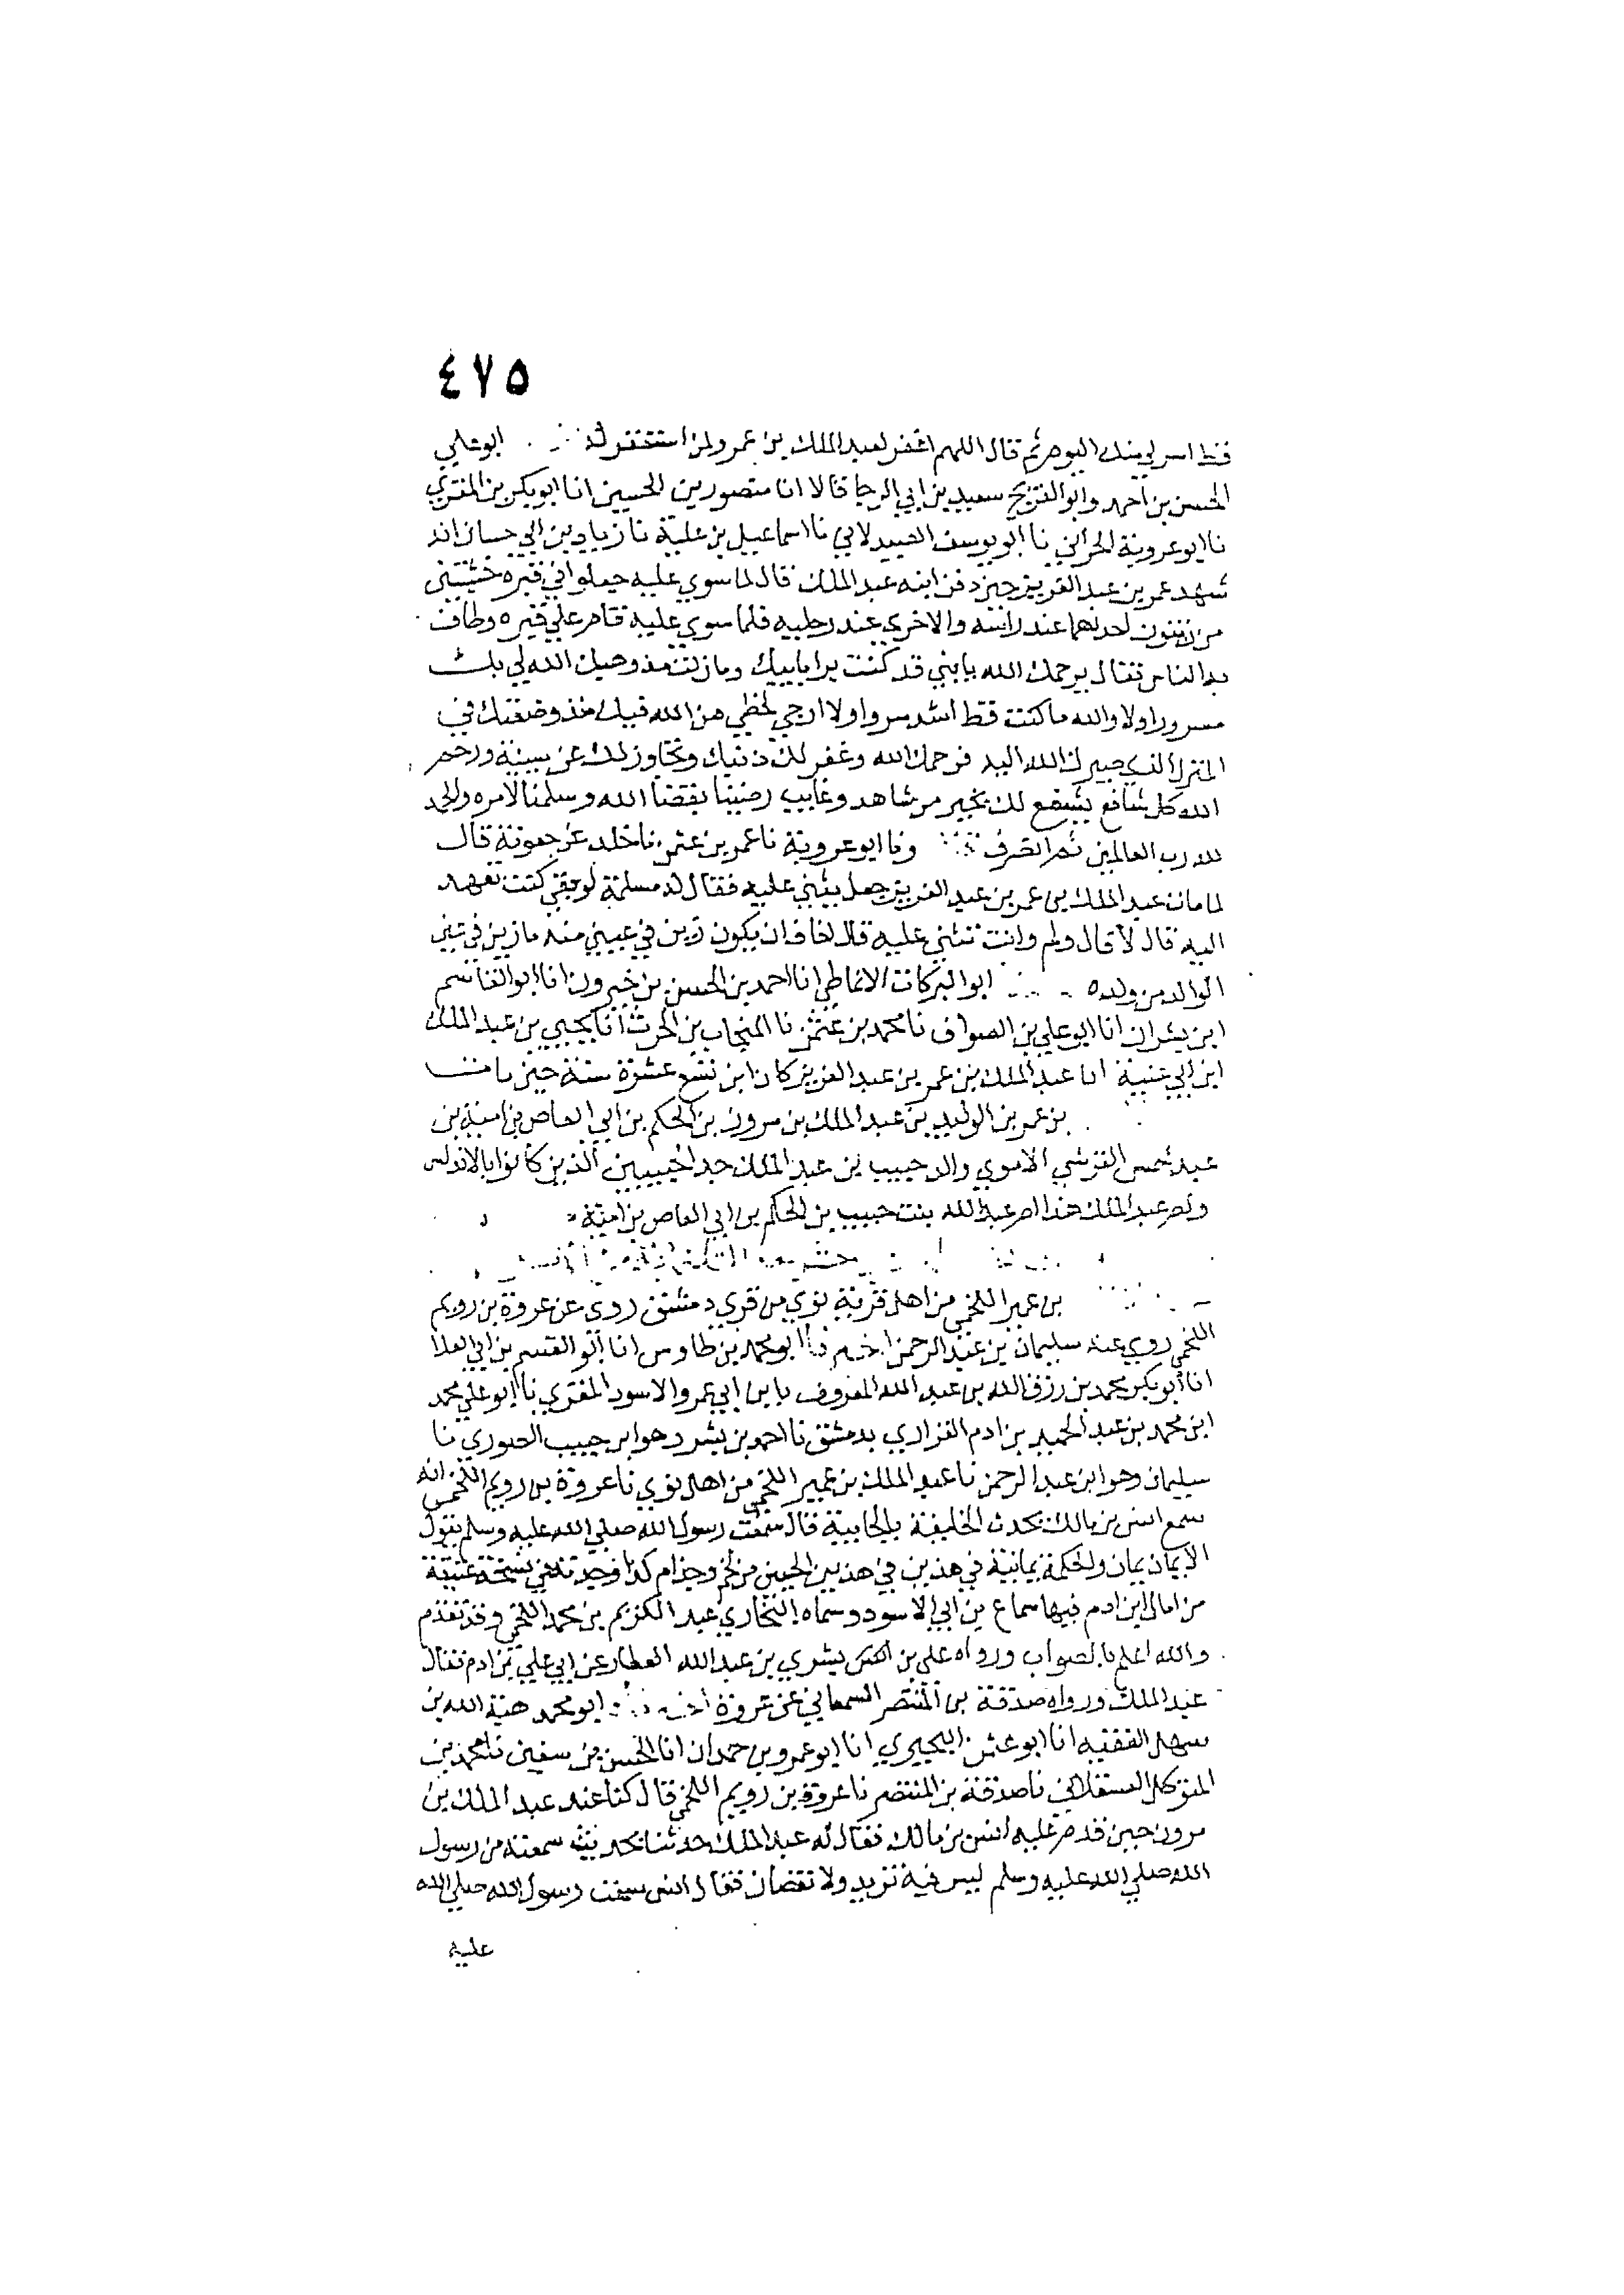 ٤٧٥
قط اسر لي منك اليوم ثم قال اللهم اغفر لعبد الملك بن عمر ولمن استغفر له ابو علي
الحسن بن احمد وابو الفرج سعيد بن ابي الرجا قالا انا منصور بن الحسين انا ابو بكر بن المقري
نا ابو عروبة الحراني نا ابو يوسف الصيدلاني نا اسماعيل بن علية نا زياد بن ابي حسان انه
شهد عمر بن عبد العزيز حين دفن ابنه عبد الملك قال لما سوي عليه جعلوا في قبره خشبتين
من زيتون احدهما عند راسه والاخري عند رجليه فلما سوي عليه قام علي قبره وطاف
به الناس فقال يرحمك الله يا بني قد كنت برا بابيك وما زلت مذ وهبك الله لي بك
مسرورا ولا والله ما كنت قط اشد سروا ولا ارجي لحظي من الله فيك منذ وضعتك في
المنزل الذي صيرك الله اليه فرحمك الله وغفر لك ذنبك وتجاوز لك عن سيئة ورحم
الله كل شافع يشفع لك بخير من شاهد وغايب رضينا بقضا الله وسلمنا لامره والحمد
لله رب العالمين ثم انصرف ونا ابو عروبة نا عمر بن عثمن نا خلد عن جعونة قال
لما مات عبد الملك بن عمر بن عبد العزيز جعل يثني عليه فقال له مسلمة لو بقي كنت تعهد
اليه قال لا قال ولم وانت تثني عليه قال اخاف ان يكون زين في عيني منه ما زين في عين
الوالد من ولده ابو البركات الانماطي انا احمد بن الحسن بن خيرون انا ابو القاسم
ابن بشران انا ابو علي بن الصواف نا محمد بن عثمن نا المنجاب بن الحرث انا يحيي بن عبد الملك
ابن ابي عنية انا عبد الملك بن عمر بن عبد العزيز كان ابن تسع عشرة سنة حين مات
بن عمر بن الوليد بن عبد الملك بن مرون بن الحكم بن ابي العاص بن امية بن
عبد شمس القرشي الاموي والد حبيب بن عبد الملك جد الحبيبين الذين كانوا بالاندلس
وام عبد الملك هذا ام عبد الله بنت حبيب بن الحكم بن ابي العاص بن امية
بن عمير اللخمي من اهل قرية نوي من قري دمشق روي عن عروة بن رويم
اللخمي روي عنه سليمان بن عبد الرحمن ابو محمد بن طاوس انا ابو القسم بن ابي العلا
انا ابو بكر محمد بن رزق الله بن عبد الله المعروف بابن ابي عمرو الاسود المقري نا ابو علي محمد
ابن محمد بن عبد الحميد بن ادم الفزاري بدمشق نا احمد بن بشر وهو ابن حبيب الصوري نا
سليمان وهو ابن عبد الرحمن نا عبد الملك بن عمير اللخمي من اهل نوي نا عروة بن رويم اللخمي انه
سمع انس بن مالك يحدث الخليفة بالجابية قال سمعت رسول الله صلي الله عليه وسلم يقول
الايمان يمان والحكمة يمانية في هذين في هذين الحيين من لخم وجذام كذا وجدته في نسخة عتيقة
من امالي ابن ادم فيها سماع بن ابي الاسود وسماه البخاري عبد الكريم بن محمد اللخمي وقد تقدم
والله اعلم بالصواب ورواه علي بن بشري بن عبد الله العطار عن ابي علي بن ادم فقال
عبد الملك ورواه صدقة بن المنتصر عن عروة ابو محمد هبة الله بن
سهل الفقيه انا ابو عثمن البحيري انا ابو عمرو بن حمدان انا الحسن بن سفين نا محمد بن
المتوكل العسقلاني نا صدقة بن المنتصر نا عروة بن رويم اللخمي قال كنا عند عبد الملك بن
مرون حين قدم عليه انس بن مالك فقال له عبد الملك حدثنا بحديث سمعته من رسول
الله صلي الله عليه وسلم ليس فيه تزيد ولا نقصان فقال انس سمعت رسول الله صلي الله
عليه